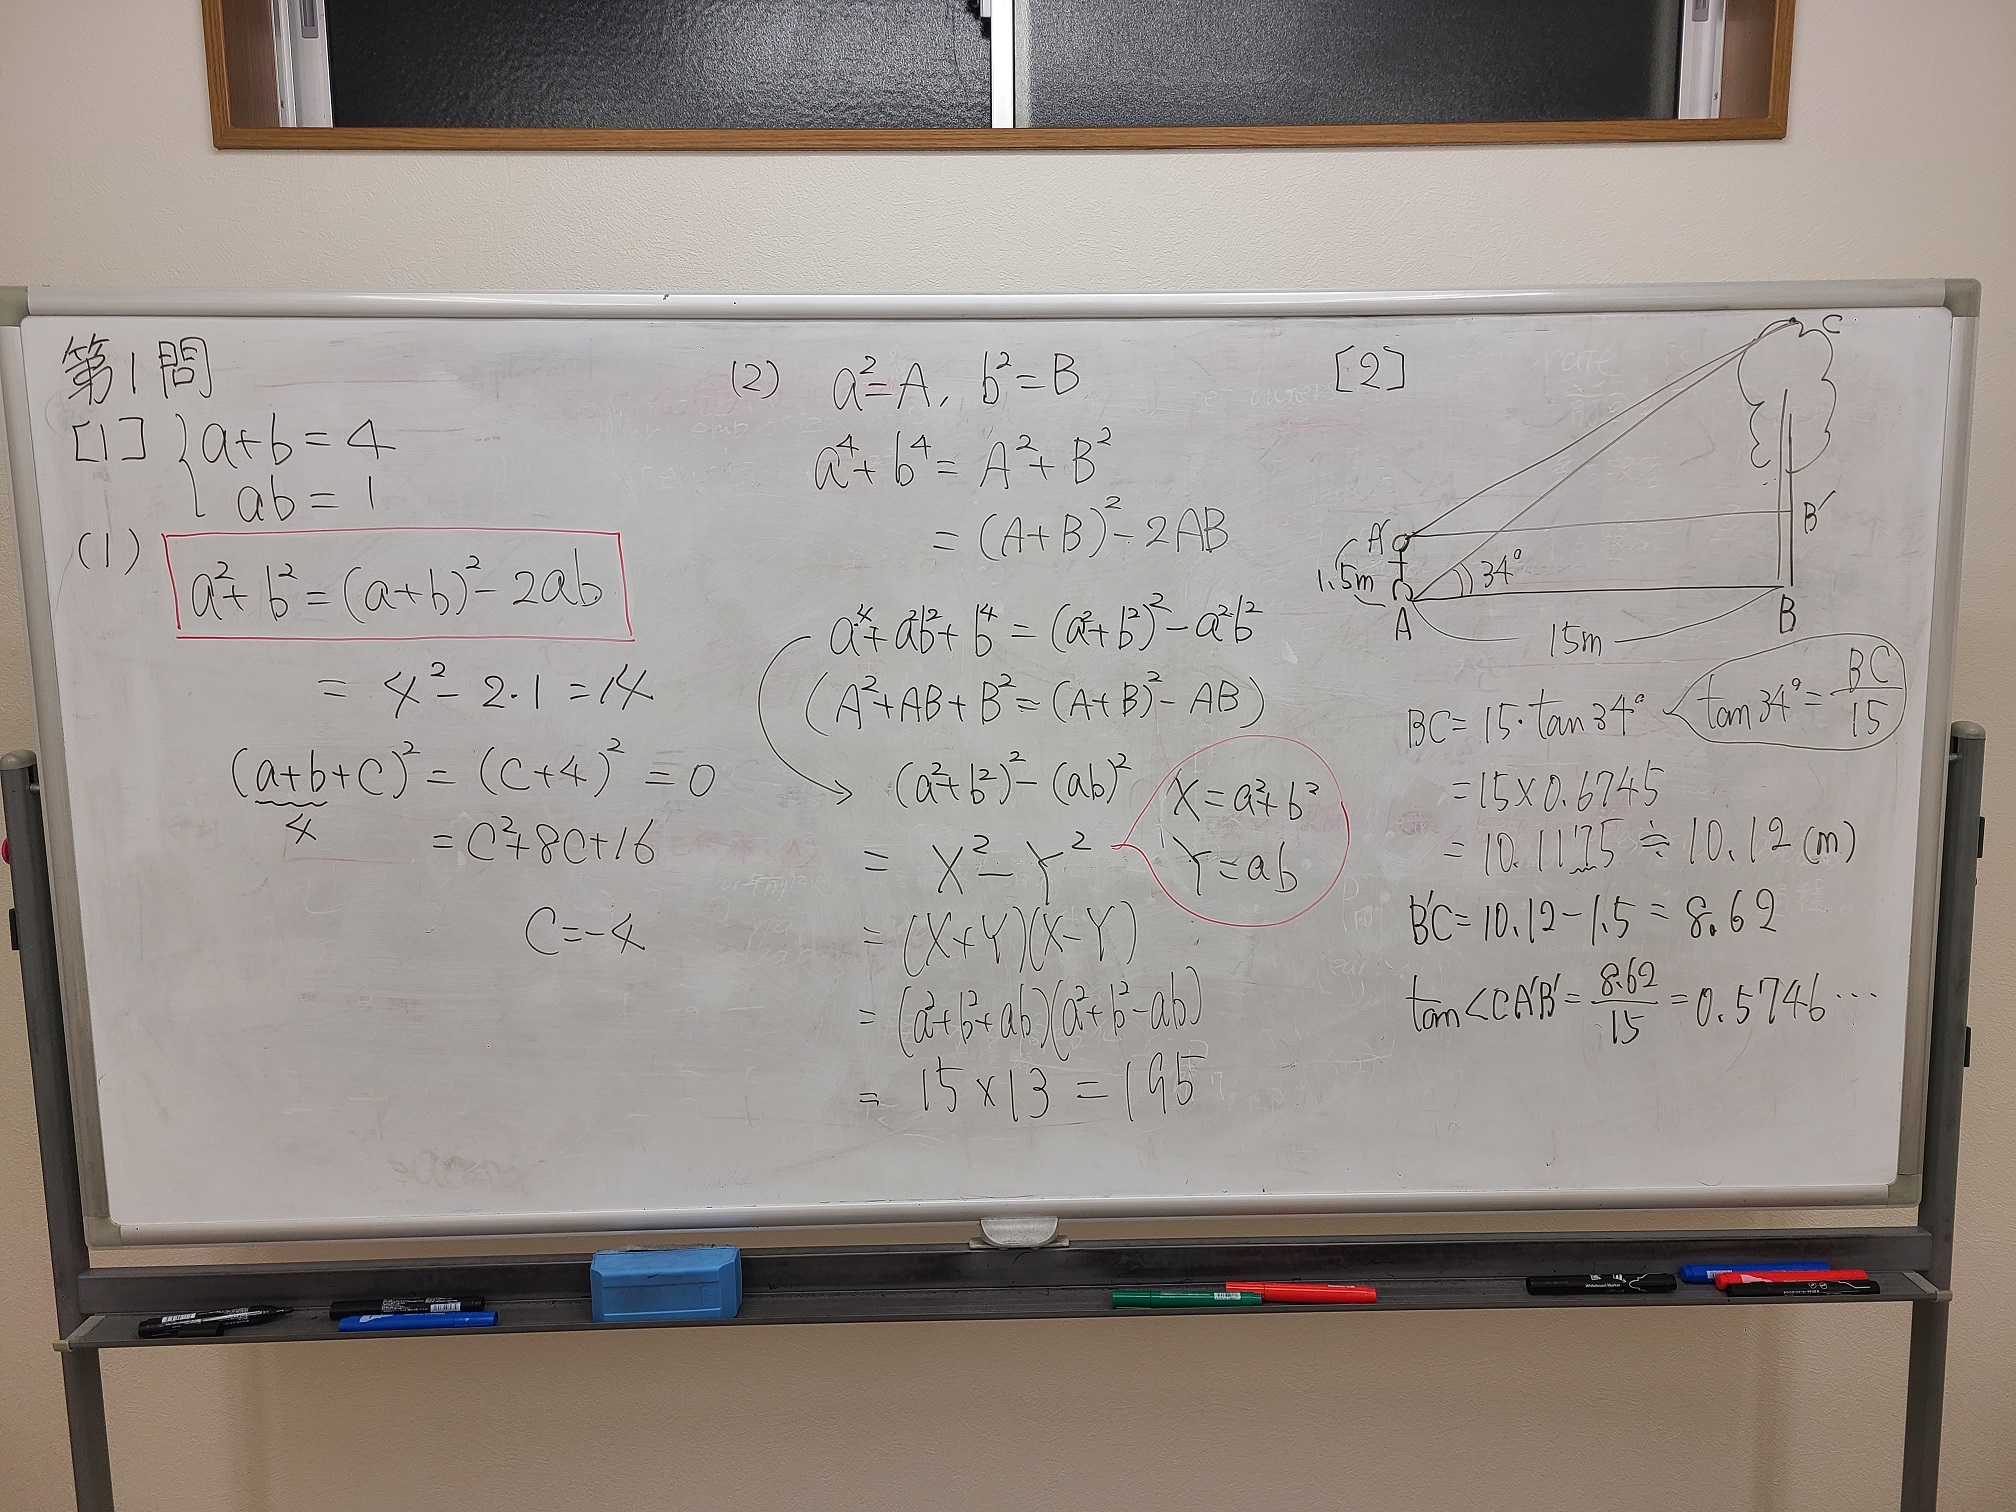 第1問
[1] { a+b=4
ab=1
(1) a²+b²=(a+b)²-2ab
= 4²-2·1=14
(a+b+C)²=(C+4)²=0
4
=C²+8C+16
C=-4
(2) a²=A, b²=B
a⁴+b⁴=A²+B²
=(A+B)²-2AB
a⁴+a²b²+b⁴=(a²+b²)²-a²b²
(A²+AB+B²=(A+B)²-AB)
(a²+b²)²-(ab)²
= X²-Y²
X=a²+b²
Y=ab
=(X+Y)(X-Y)
=(a²+b²+ab)(a²+b²-ab)
= 15×13=195
[2]
C
B'
A'
1.5m
34°
A
B
15m
BC=15·tan34°
tan34°=BC/15
=15×0.6745
=10.1175≒10.12(m)
B'C=10.12-1.5=8.62
tan∠CA'B'=8.62/15=0.5746…